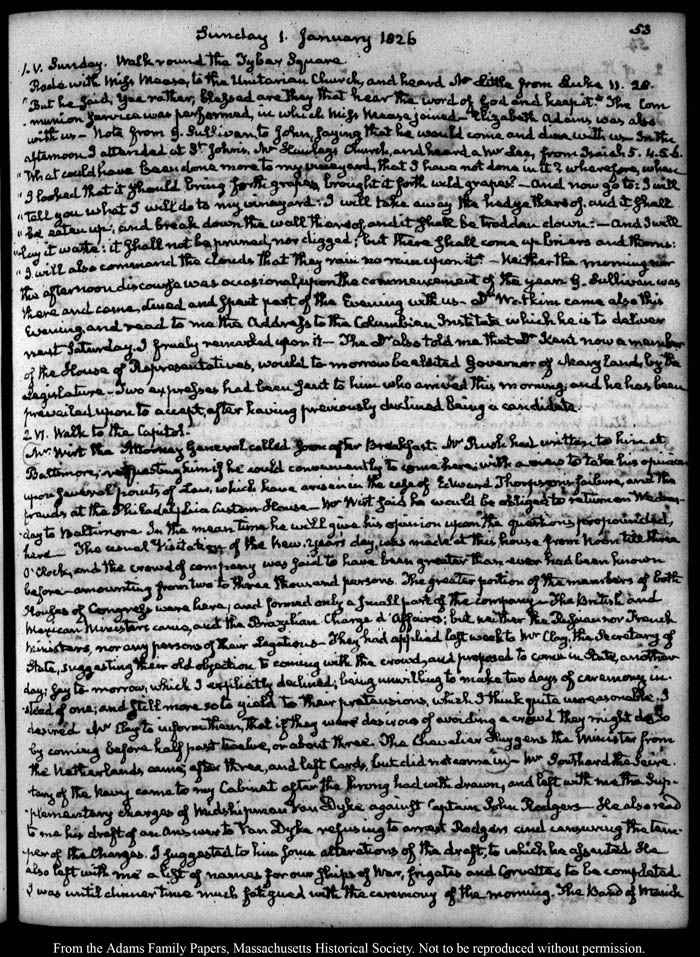 53
Sunday 1. January 1826
1. V. Sunday. Walk round the Tyber Square.
Rode with Miss Mease, to the Unitarian Church, and heard Mr Little from Luke 11. 28.
"But he said, yea rather, blessed are they that hear the word of God and keep it." The Com
munion service was performed, in which Miss Mease joined — Elizabeth Adams was also
with us — Note from G. Sullivan to John, saying that he would come and dine with us — In the
afternoon I attended at St. John's, Mr Hawley's Church, and heard a Mr Lee, from Isaiah 5. 4.5.6.
"What could have been done more to my vineyard, that I have not done in it? wherefore, when
"I looked that it should bring forth grapes, brought it forth wild grapes? — And now go to: I will
"tell you what I will do to my vineyard: I will take away the hedge thereof, and it shall
"be eaten up; and break down the wall thereof, and it shall be trodden down: — And I will
"lay it waste: it shall not be pruned, nor digged; but there shall come up briers and thorns:
"I will also command the clouds that they rain no rain upon it." — Neither the morning nor
the afternoon discourse was occasional, upon the commencement of the year. G. Sullivan was
there and came, dined and spent part of the Evening with us. Dr Watkins came also this
Evening, and read to me the Address to the Columbian Institute which he is to deliver
next Saturday. I freely remarked upon it — The Dr also told me that Dr Kent now a member
of the House of Representatives, would to morrow be elected Governor of Maryland, by the
Legislature — Two expresses had been sent to him who arrived this morning, and he has been
prevailed upon to accept, after having previously declined being a candidate.
2 VI. Walk to the Capitol.
Mr Wirt the Attorney General called soon after Breakfast. Mr Rush had written to him at
Baltimore, requesting him if he could conveniently to come here, with a view to take his opinion
upon several points of Law, which have arisen in the case of Edward Thompson's failure, and the
frauds at the Philadelphia Custom House — Mr Wirt said he would be obliged to return on Wednes-
day to Baltimore. In the mean time he will give his opinion upon the questions propounded,
here — The usual Visitation of the New Year's day, was made at this house from Noon till three
O'Clock, and the crowd of company was said to have been greater than ever had been known
before — amounting from two to three thousand persons. The greater portion of the members of both
Houses of Congress were here; and formed only a small part of the company — The British and
Mexican Ministers came, and the Brazilian Chargé d'Affaires; but neither the Russian nor French
Ministers, nor any persons of their Legations — They had applied last week to Mr Clay, the Secretary of
State, suggesting their old objection to coming with the crowd, and proposed to come in State, another
day; say to morrow, which I explicitly declined; being unwilling to make two days of ceremony in-
stead of one; and still more so to yield to their pretensions, which I think quite unreasonable. I
desired Mr Clay to inform them, that if they were desirous of avoiding a crowd they might do so
by coming before half past twelve, or about three. The Chevalier Huygens the Minister from
the Netherlands, came, after three, and left Cards, but did not come in — Mr Southard the Secre-
tary of the Navy came to my Cabinet after the throng had withdrawn, and left with me the Sup-
plementary charges of Midshipman Van Dyke against Captain John Rodgers — He also read
to me his draft of an Answer to Van Dyke refusing to arrest Rodgers and censuring the tem-
per of the Charges. I suggested to him some alterations of the draft, to which he assented. He
also left with me a list of names for our ships of War, frigates and Corvettes to be completed
I was until dinner time much fatigued with the ceremony of the morning. The Band of Musick
From the Adams Family Papers, Massachusetts Historical Society. Not to be reproduced without permission.